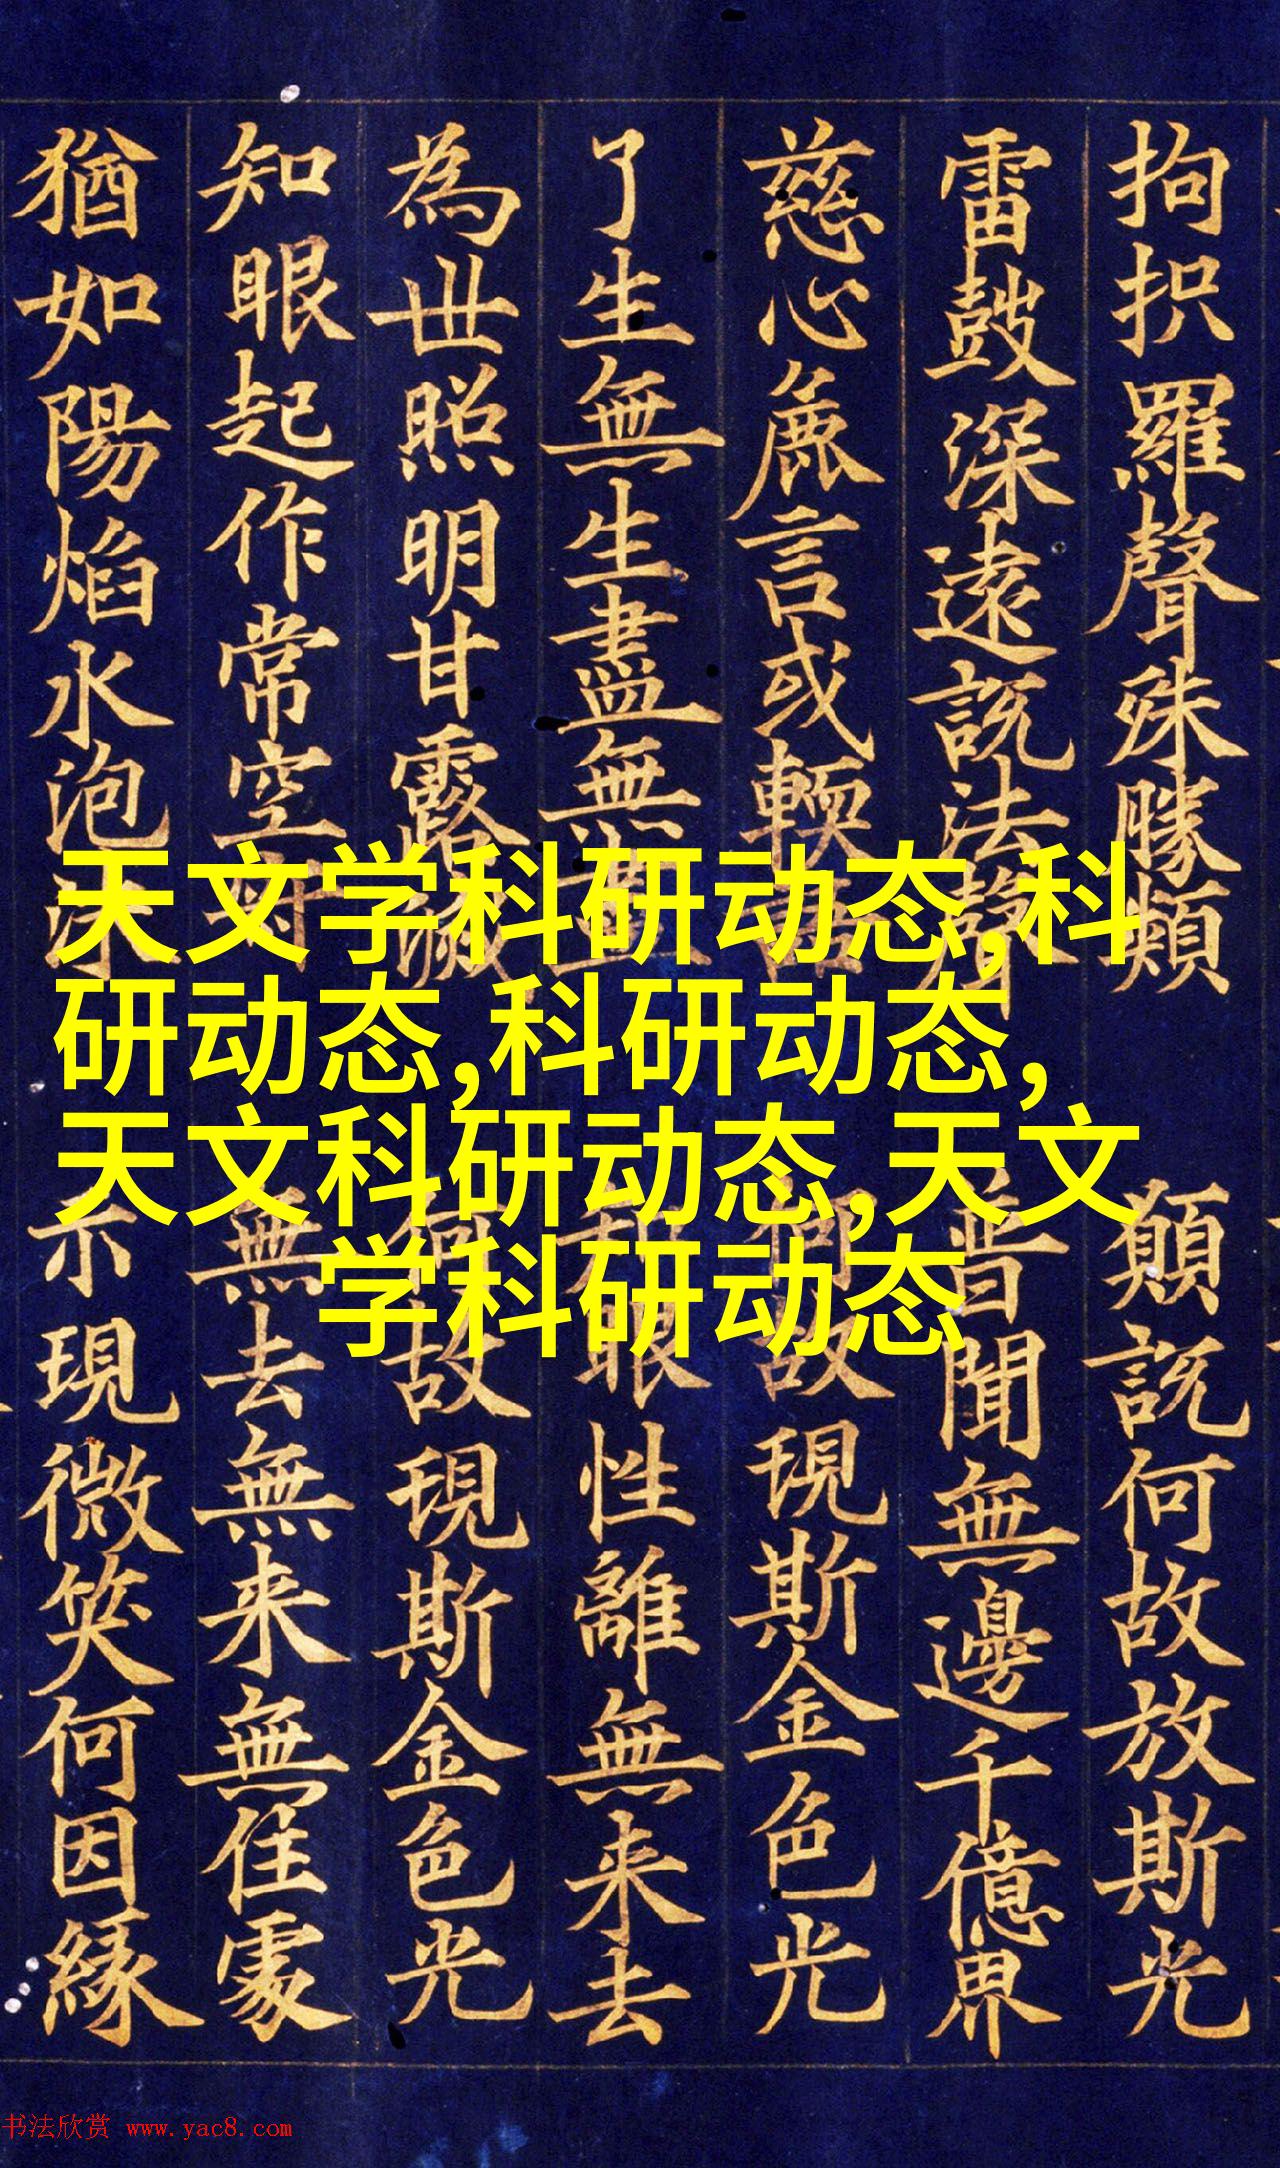 拘抧羅聲殊勝類
願説何故放斯光
雷鼓深遠説法聲
普聞無邊千億界
慈心麁言或輭言
何故現斯金色光
了生無生盡無盡
眼性離無来去
為世照明甘露滅
何故現斯金色光
知眼起作常空
無去無来無住處
猶如陽焰水泡沫
示現微笑何因緣
天文学科研动态,科
研动态,科研动态,
天文科研动态,天文
学科研动态
书法欣赏 www.yac8.com